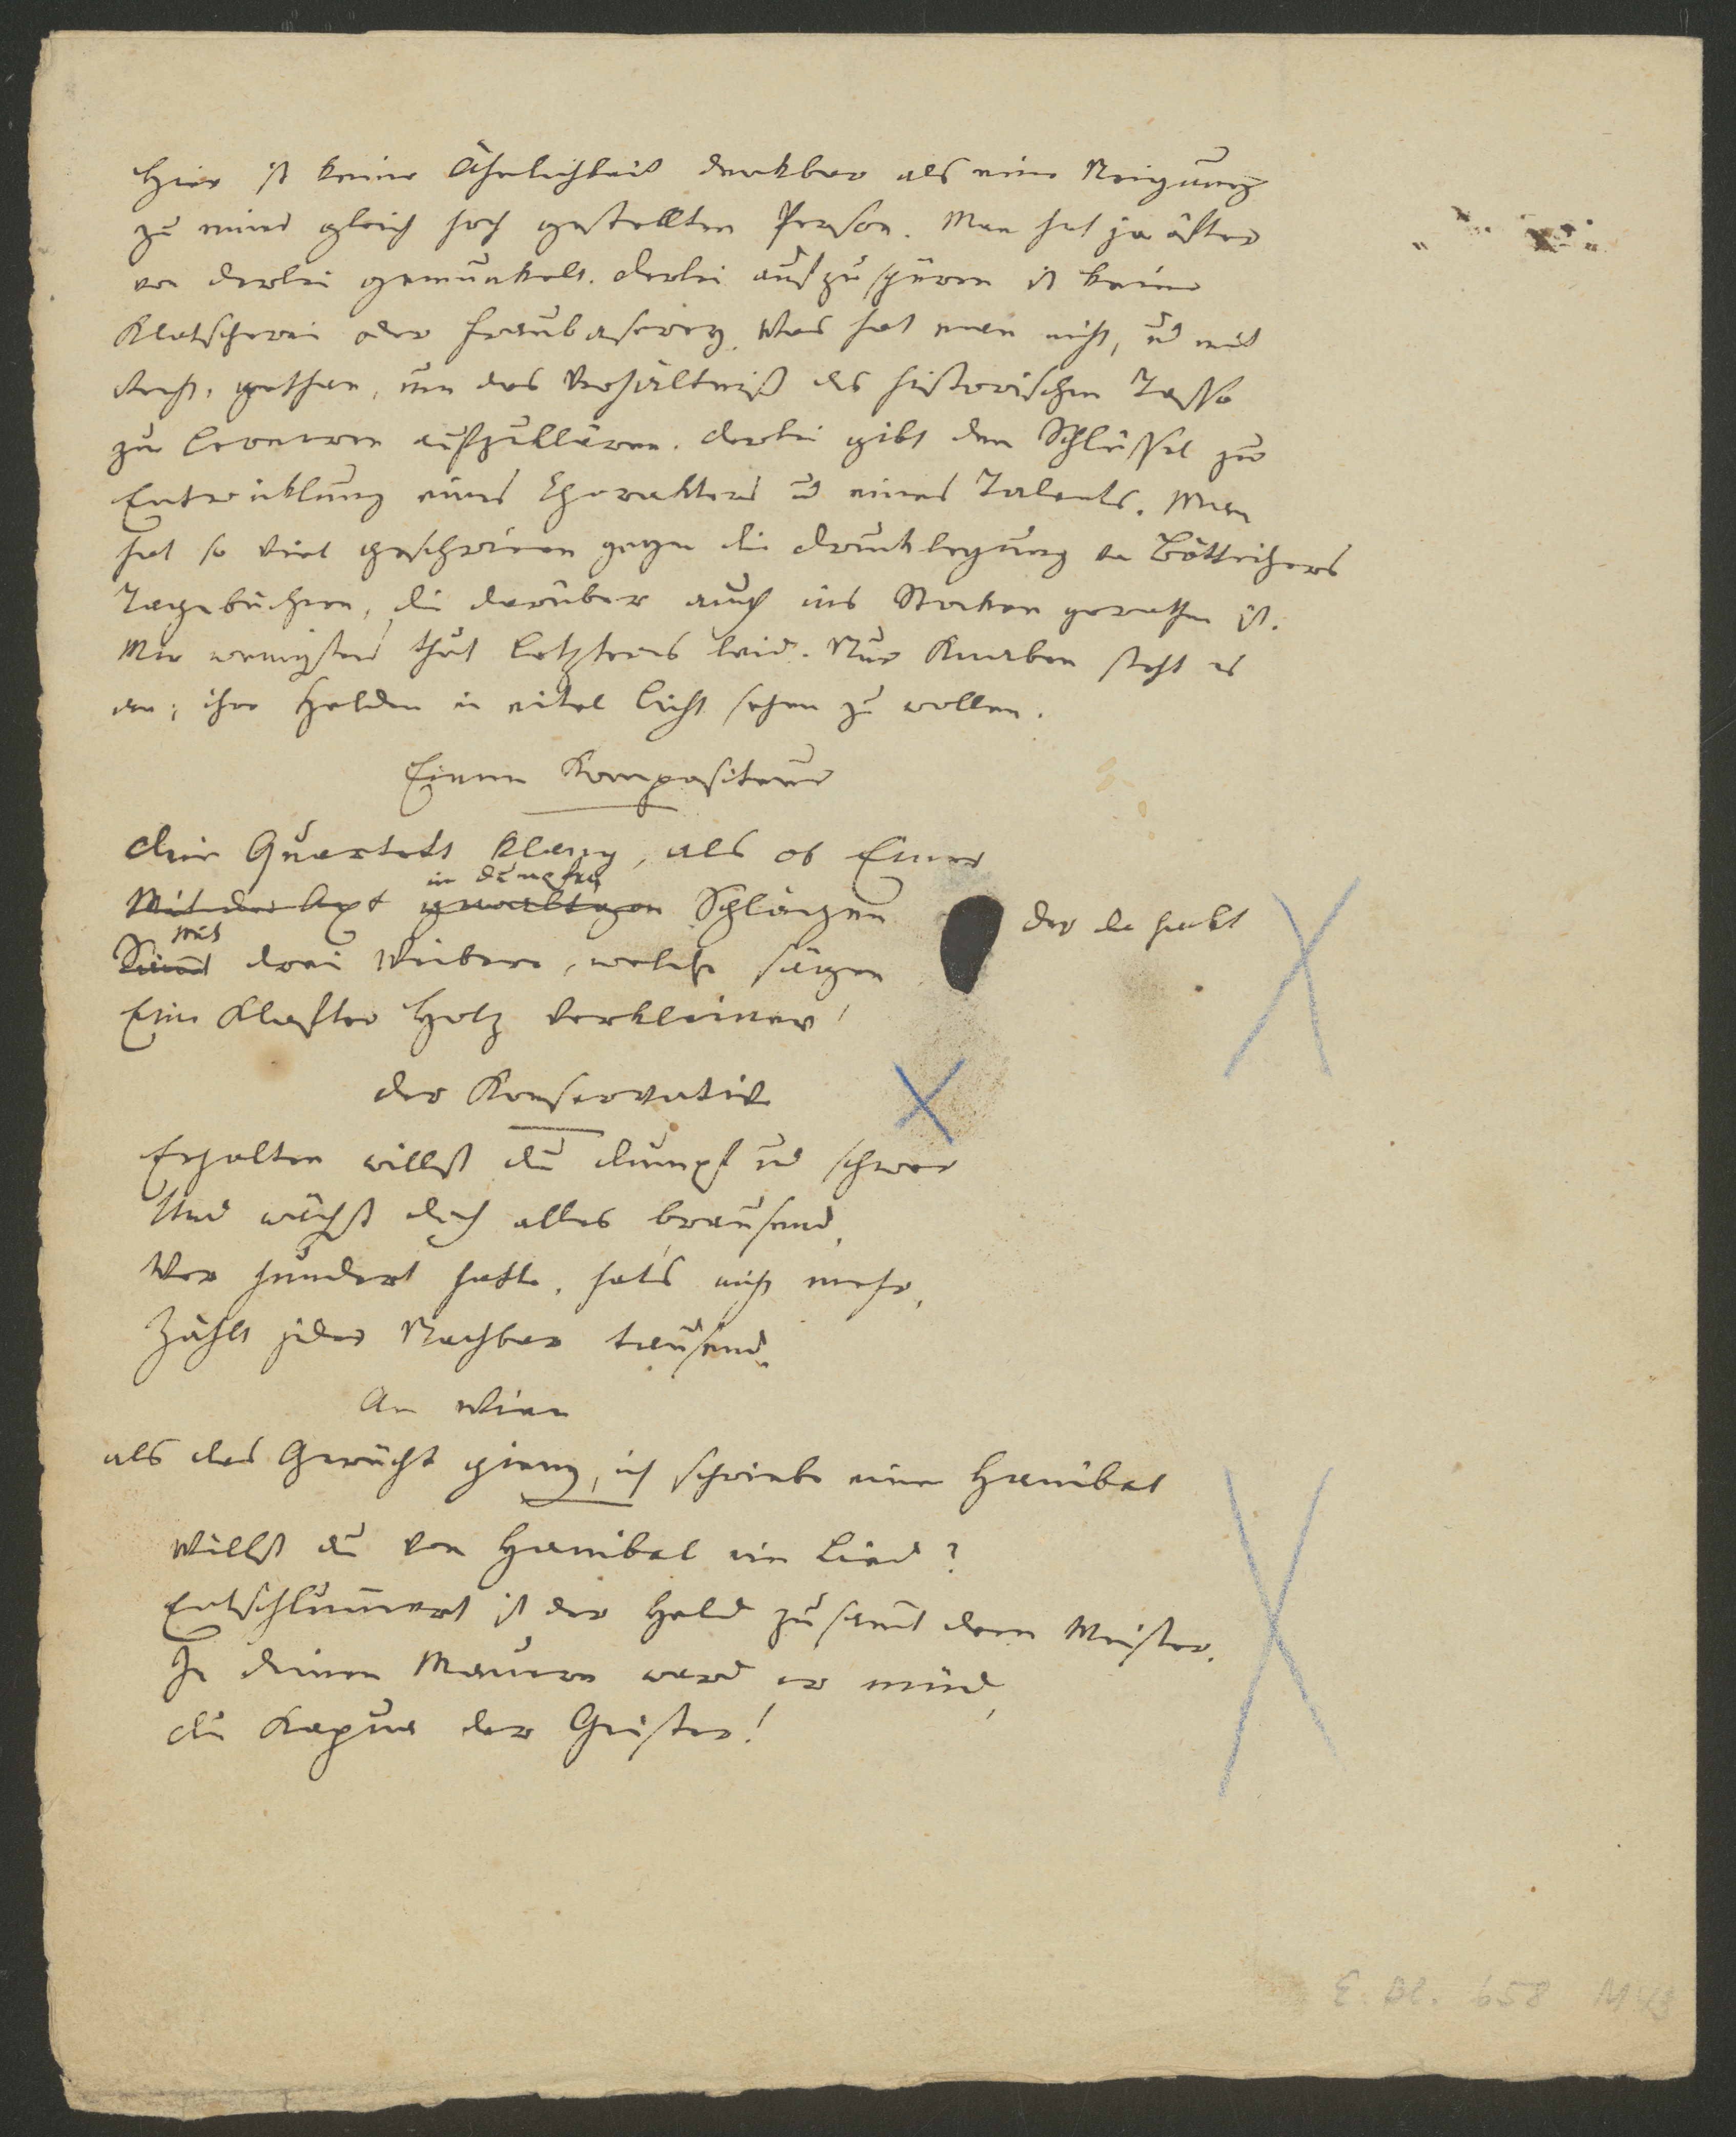 Hier ist keine Ähnlichkeit denkbar als eine Neigung
zu einer gleich hoch gestellten Person. Man hat ja öfter
von derlei gemunkelt. Derlei aufzuspüren ist keine
Klatscherei oder Fraubaserey. Was hat man nicht, u mit
Recht, gethan, um das Verhältniß des historischen Tasso
zu Leonoren aufzuklären. Derlei gibt den Schlüssel zur
Entwicklung eines Charakters u eines Talents. Man
hat so viel geschrieen gegen die Drucklegung von Böttichers
Tagebüchern, die darüber auch ins Stocken gerathen ist.
Mir wenigstens thut letzteres leid. Nur Knaben steht es
an, ihre Helden in eitel Licht sehen zu wollen.
Einem Kompositeur
Dein Quartett klang, als ob Einer
Mit der Axt gewaltigen in dumpfen Schlägen der da hackt
Samt mit drei Weibern, welche sägen
Eine Klafter Holz verkleiner'
Der Konservative
Erhalten willst du dumpf und schwer
Und wächst doch alles brausend,
Wer hundert hatte, hat's nicht mehr,
Zählt jeder Nachbar tausend.
An Wien
als das Gerücht gieng, ich schriebe einen Hanibal
Willst du von Hanibal ein Lied?
Entschlummert ist der Held zusamt dem Meister.
In deinen Mauern ward er müd,
Du Kapua der Geister!
E. Bl. 658